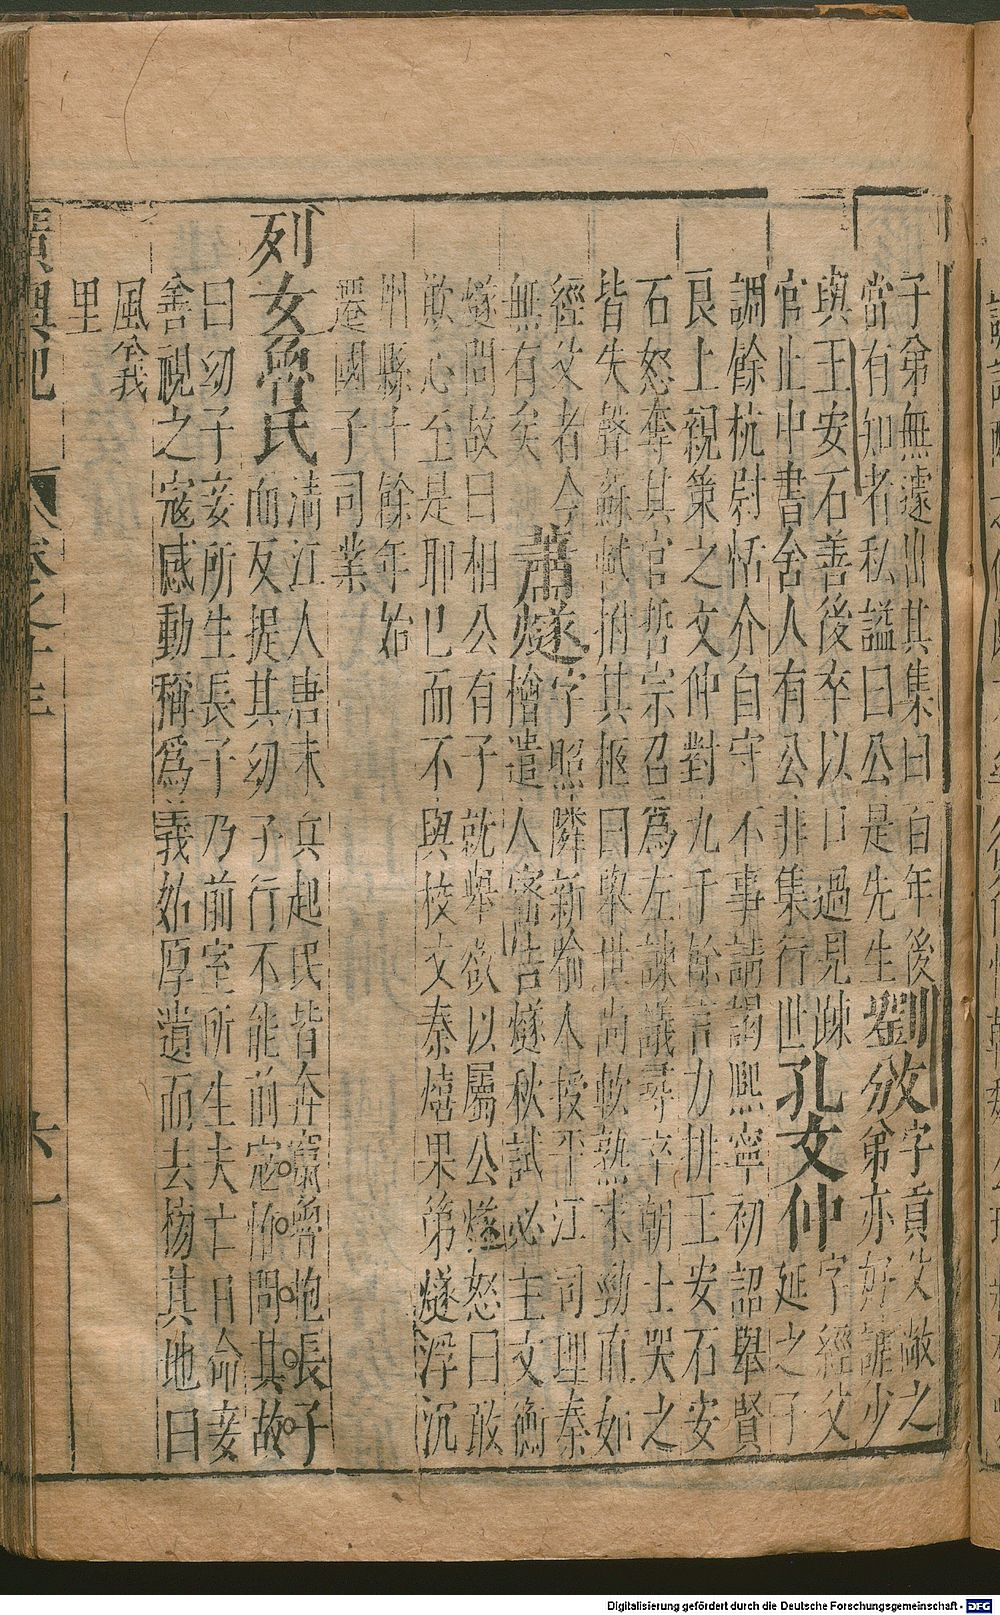 子弟無遽出其集曰百年後劉攽字貢父敞之
當有知者私謚曰公是先生 弟亦好謔少
與王安石善後卒以口過見疎 字經父
官止中書舍人有公非集行世孔文仲延之子
調餘杭尉恬介自守不事請謁熙寧初詔舉賢
良上親策之文仲對九千餘言力排王安石安
石怒奪其官哲宗召爲左諫議尋卒朝士哭之
皆失聲蘇軾拊其柩曰舉世尚軟熟求勁直如
經父者今 字照隣新喻人授平江司理秦
無有矣蕭燧檜遣人密告燧秋試必主文衡
燧問故曰相公有子就舉欲以屬公燧怒曰敢
欺心至是耶已而不與校文秦熺果第燧浮沉
州縣十餘年始
遷國子司業
列女魯氏清江人唐末兵起民皆奔竄魯抱長子
而反提其幼子行不能前寇怖問其故
曰幼子妾所生長子乃前室所生夫亡日命妾
善視之寇感動稱爲義姑厚遺而去榜其地曰
風義
里
廣輿記 卷之十三 六一
Digitalisierung gefördert durch die Deutsche Forschungsgemeinschaft - DFG